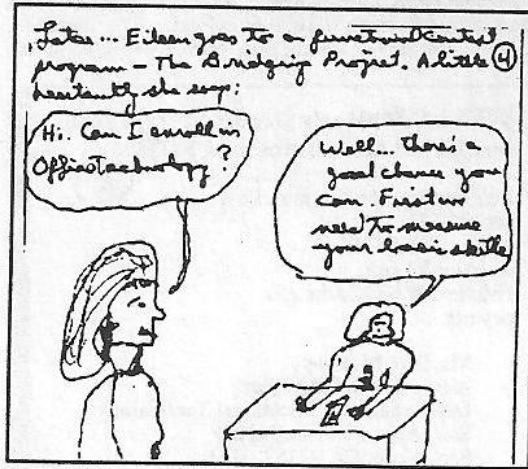 Later... Eileen goes to a functional context
program - The Bridging Project. A little ④
hesitantly she says:
Hi. Can I enroll in
Office Technology?
Well... there's a
good chance you
can. First we
need to measure
your basic skills